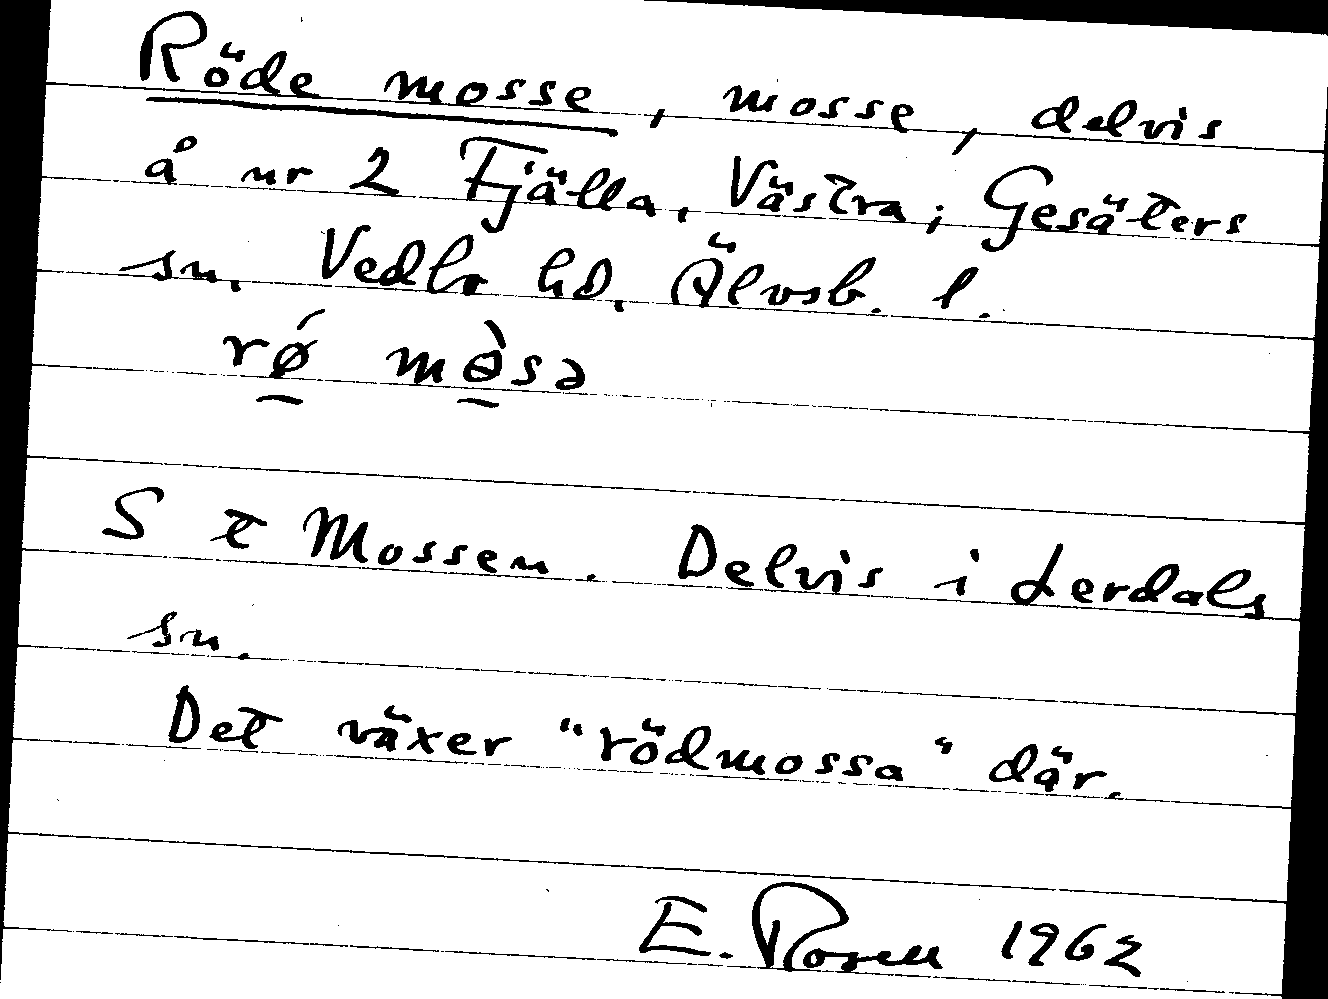 Röde mosse, mosse, delvis
å nr 2 Fjälla, Västra; Gesäters
sn. Vedbo hd. Älvsb. l.
rǿ mɵ̀sə
S t Mossen. Delvis i Lerdals
sn.
Det växer "rödmossa" där.
E. Rosell 1962